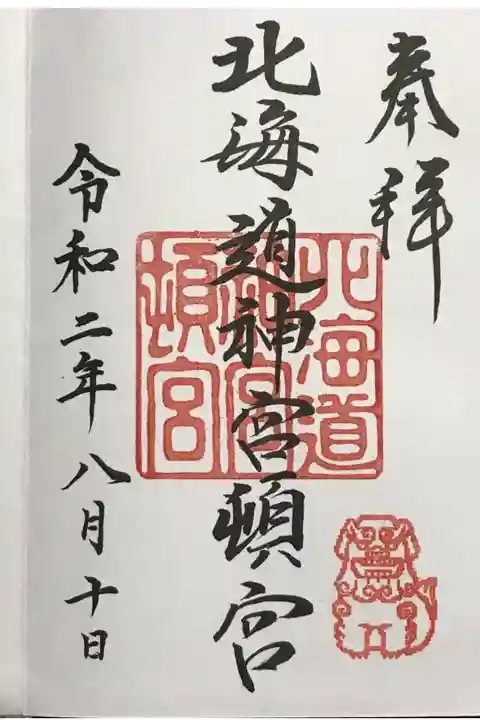 奉拝
北海道神宮頓宮
北海道
神宮
頓宮
令和二年八月十日